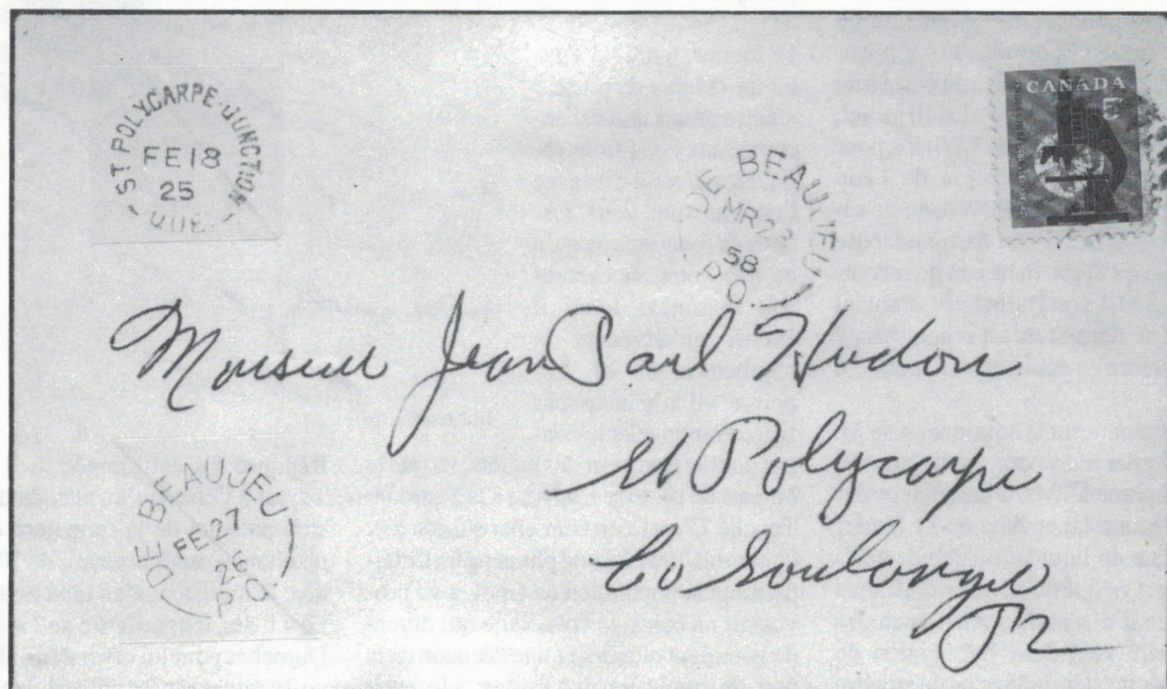 ST POLYCARPE-JUNCTION
FE 18
25
QUE
CANADA
5
DE BEAUJEU
MR 22
58
P.Q.
Monsieur Jean Paul Hudon
St Polycarpe
Co Soulanges
DE BEAUJEU
FE 27
25
P.Q.